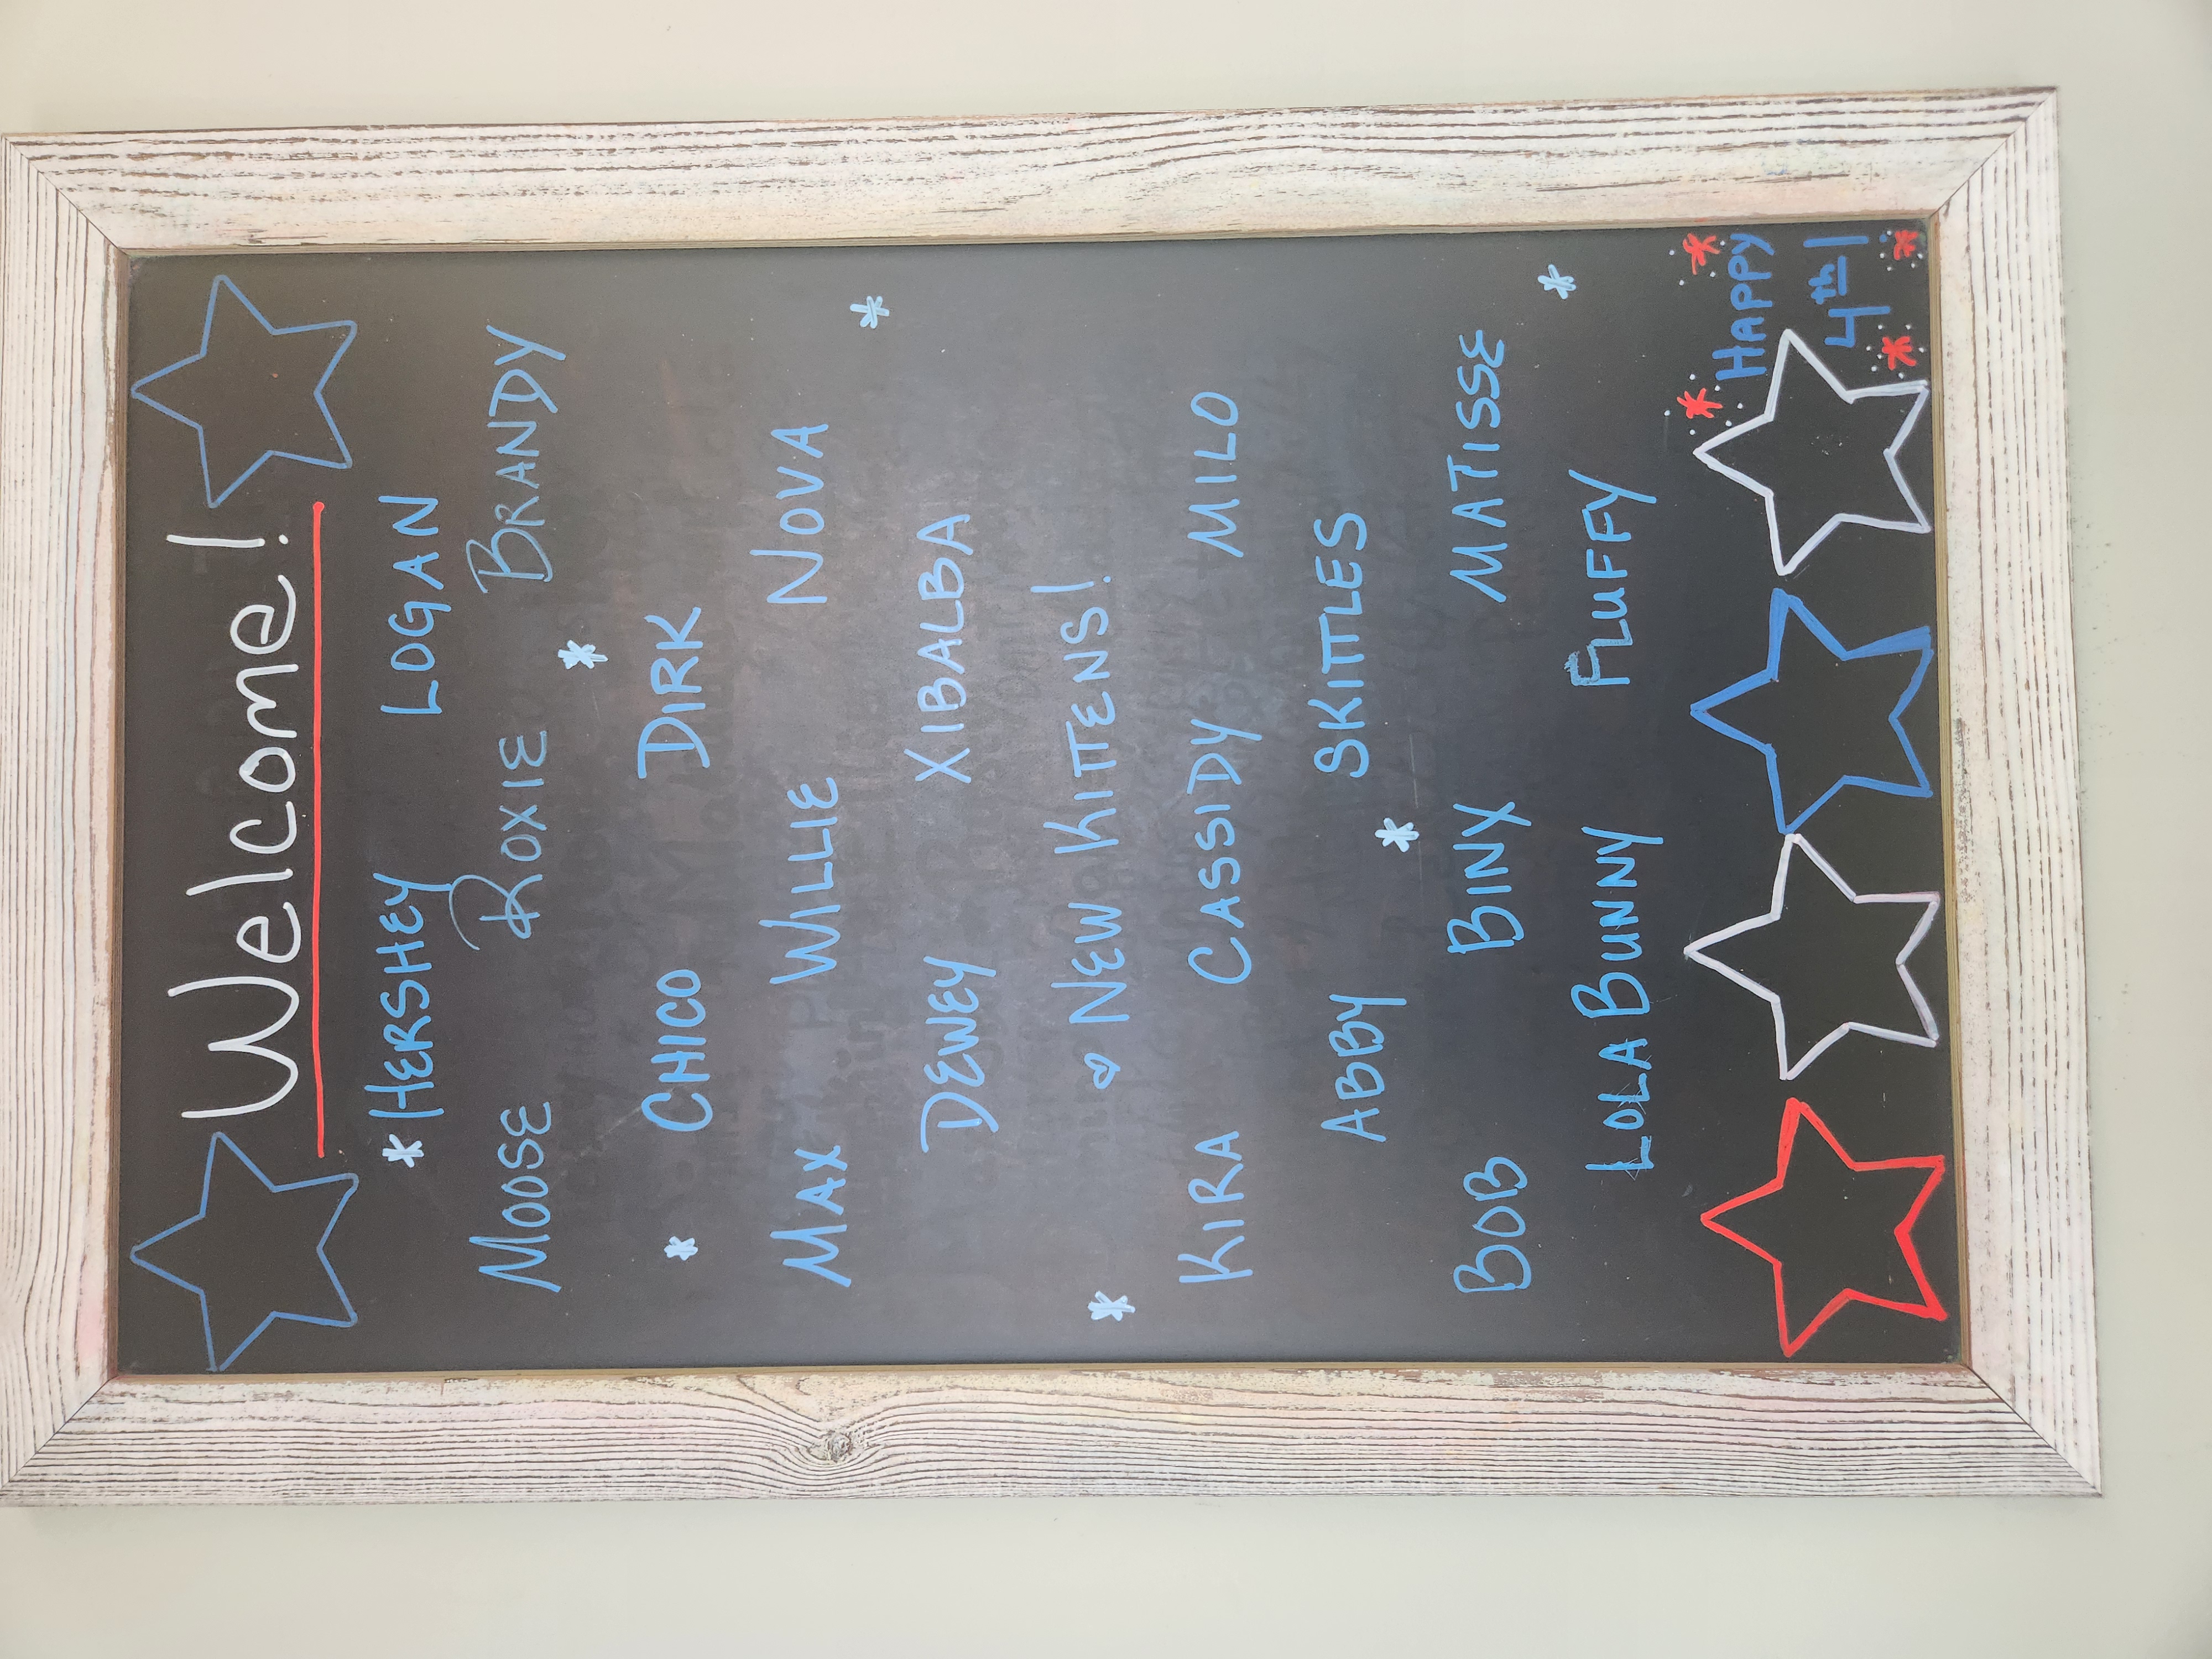 Welcome!
* HERSHEY LOGAN
MOOSE ROXIE BRANDY
CHICO DIRK
MAX WILLIE NOVA
DEWEY XIBALBA
♡ NEW KITTENS!
KIRA CASSIDY MILO
ABBY SKITTLES
BOB BINX MATISSE
LOLA BUNNY FLUFFY
HAPPY
4th!